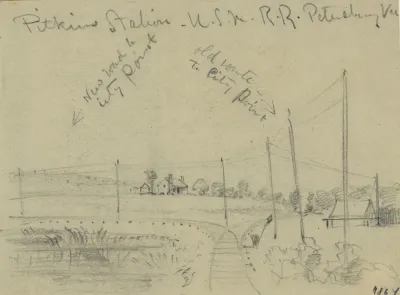 Pitkins Station - U.S.M. R.R. Petersburg Va
New road to
City Point
old route -
to City Point
1864